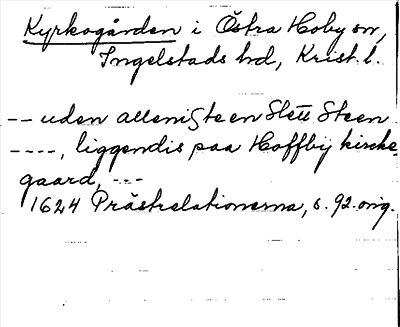 Kyrkogården i Östra Hoby sn,
Ingelstads hd, Krist. l.
-- uden alleniste en Slett Steen
----, liggendis paa Hoffbÿ kircke-
gaard, ---
1624 Prästrelationerna, s. 92. orig.